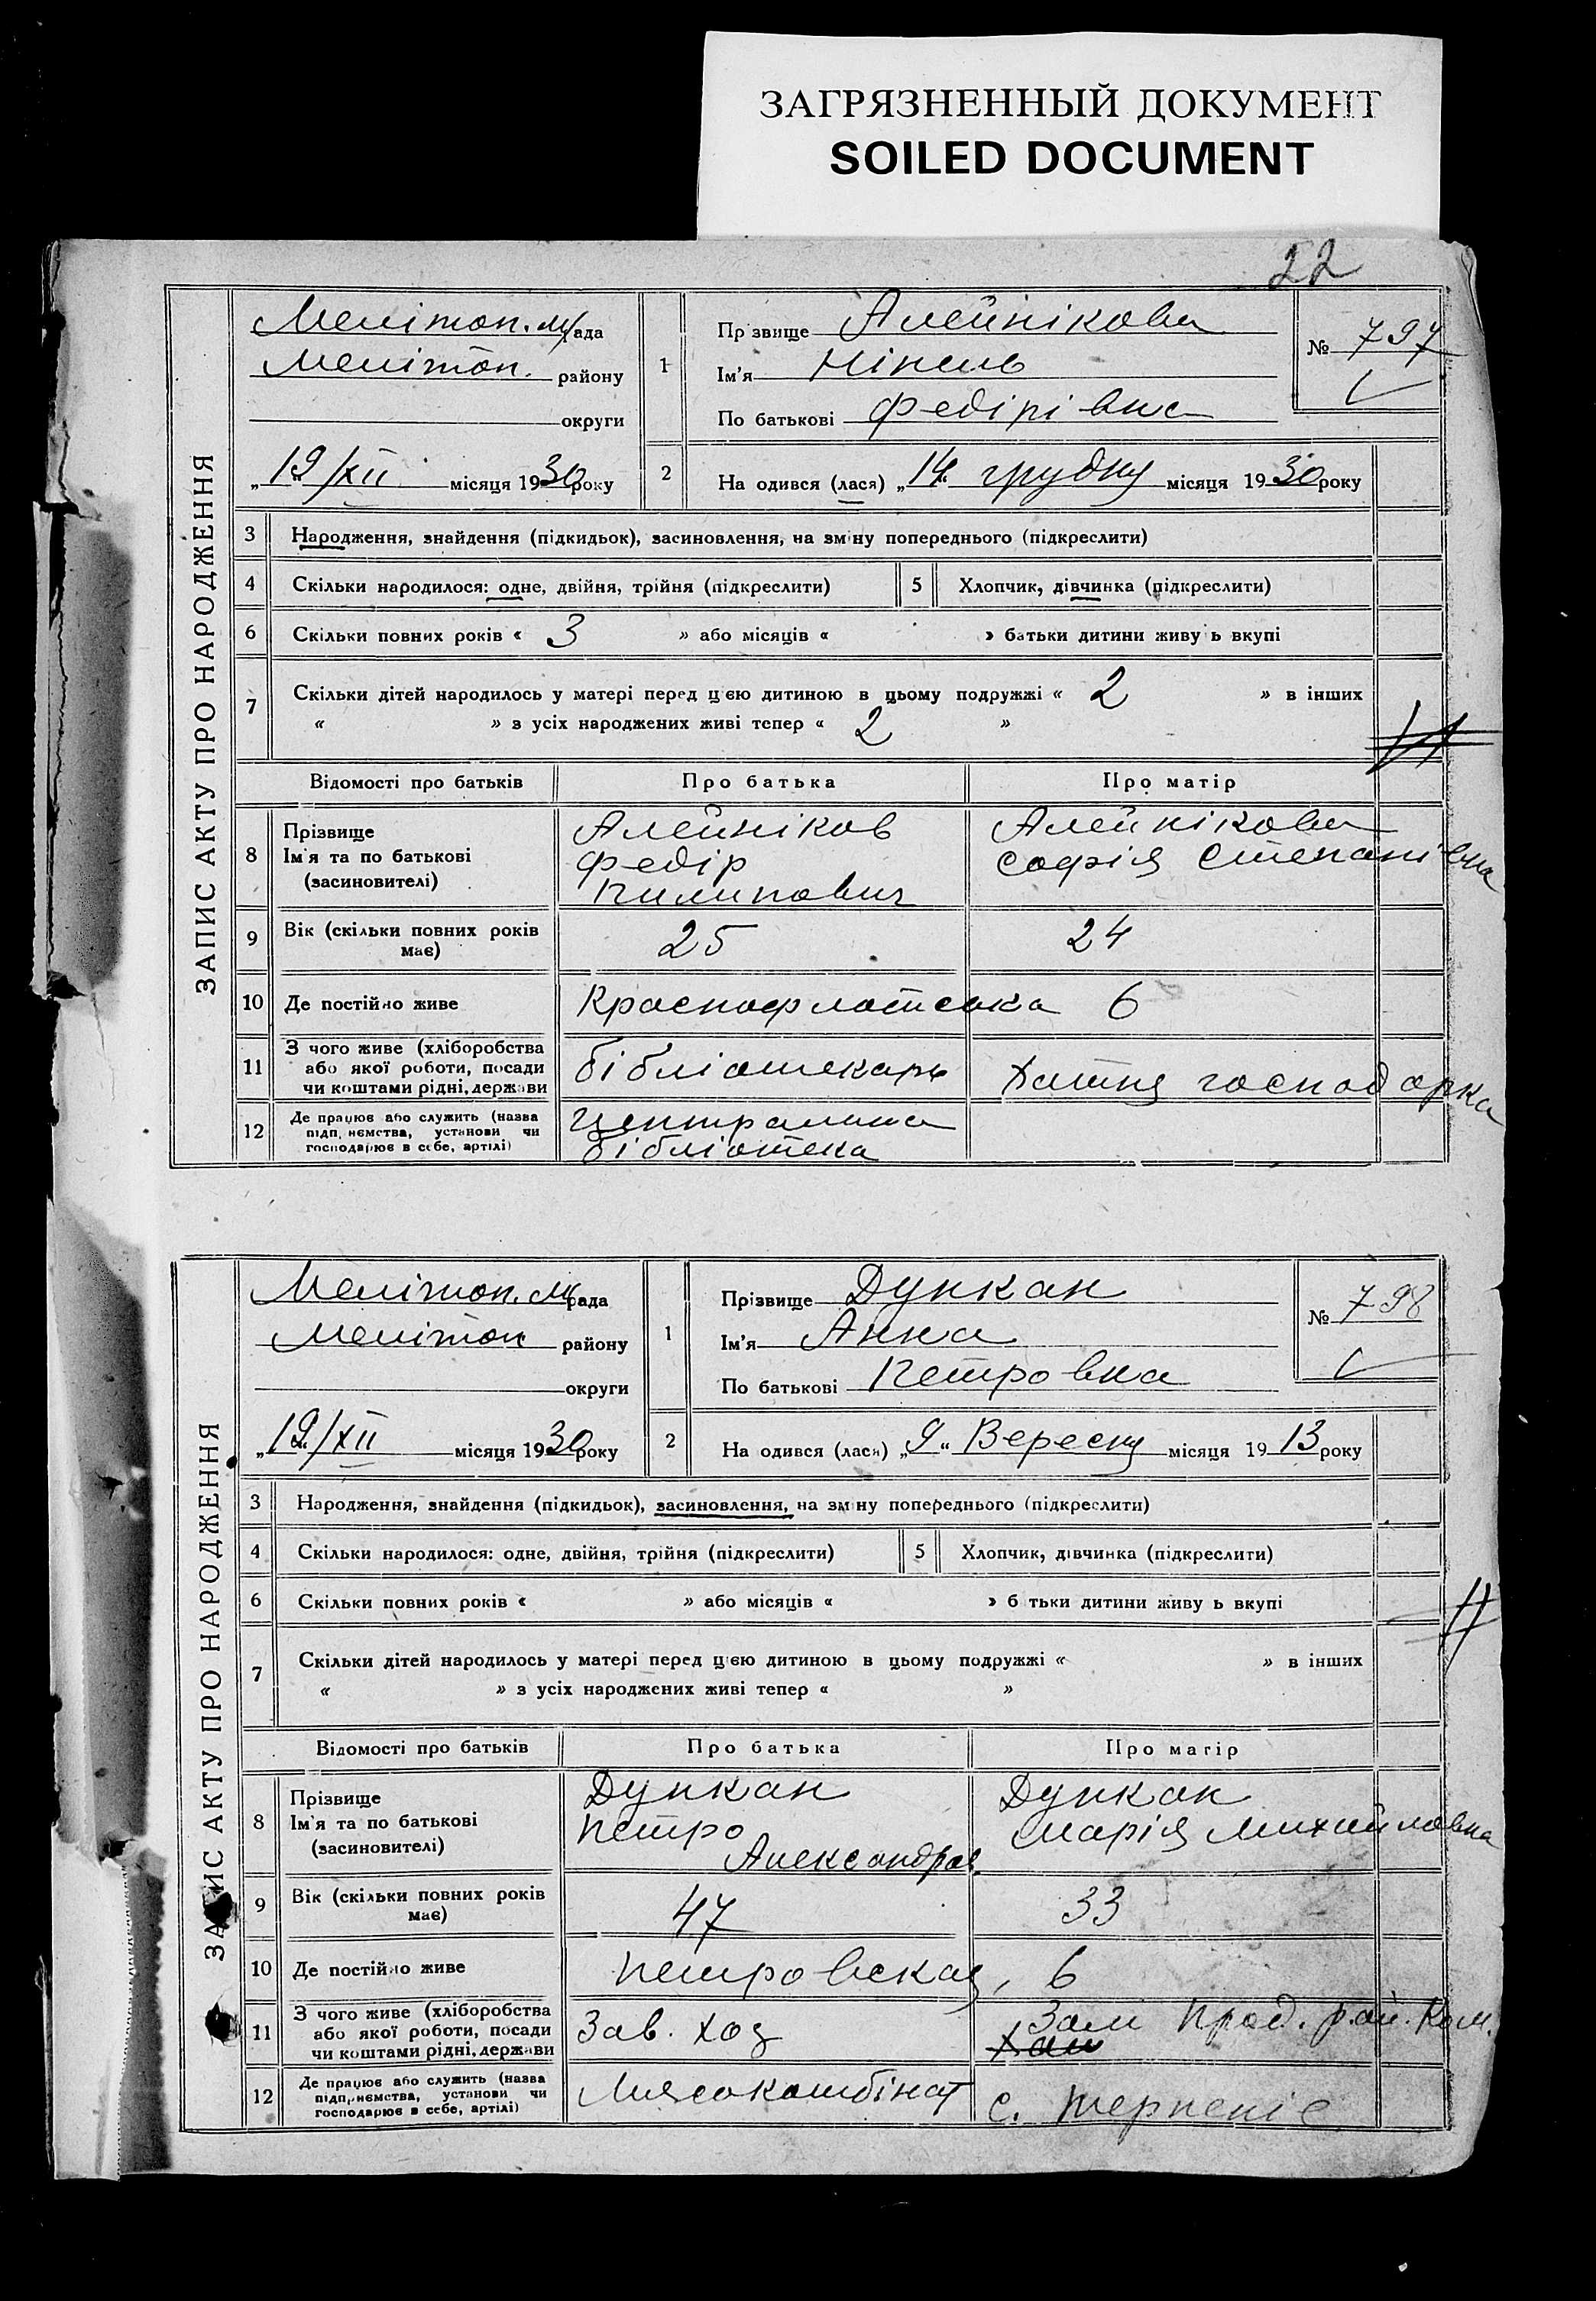 ЗАГРЯЗНЕННЫЙ ДОКУМЕНТ
SOILED DOCUMENT
22
ЗАПИС АКТУ ПРО НАРОДЖЕННЯ
Мелітоп. м/рада
Мелітоп. району
округи
„19/XII місяця 1930 року
1 Прізвище Алейнікова
Ім'я Нінель
По батькові Федірівна
№ 797
2 На одився (лася) „14 грудну місяця 1930 року
3 Народження, знайдення (підкидьок), засиновлення, на зміну попереднього (підкреслити)
4 Скільки народилося: одне, двійня, трійня (підкреслити) 5 Хлопчик, дівчинка (підкреслити)
6 Скільки повних років « 3 » або місяців « » батьки дитини живу ь вкупі
7 Скільки дітей народилось у матері перед цією дитиною в цьому подружжі « 2 » в інших
« » з усіх народжених живі тепер « 2 »
Відомості про батьків Про батька Про матір
8 Прізвище Ім'я та по батькові (засиновителі)
Алейніков Федір Пилипович
Алейнікова Софія Степанівна
9 Вік (скільки повних років має) 25 24
10 Де постійно живе Краснофлотська 6
11 З чого живе (хліборобства або якої роботи, посади чи коштами рідні, держави
бібліотекарь Хатня господарка
12 Де працює або служить (назва підприємства, установи чи господарює в себе, артілі)
Центральна бібліотека
ЗАПИС АКТУ ПРО НАРОДЖЕННЯ
Мелітоп. м/рада
Мелітоп району
округи
„19/XII місяця 1930 року
1 Прізвище Дункан
Ім'я Анна
По батькові Петровна
№ 798
2 На одився (лася) „9“ Вересну місяця 1913 року
3 Народження, знайдення (підкидьок), засиновлення, на зміну попереднього (підкреслити)
4 Скільки народилося: одне, двійня, трійня (підкреслити) 5 Хлопчик, дівчинка (підкреслити)
6 Скільки повних років « » або місяців « » б тьки дитини живу ь вкупі
7 Скільки дітей народилось у матері перед цією дитиною в цьому подружжі « » в інших
« » з усіх народжених живі тепер « »
Відомості про батьків Про батька Про матір
8 Прізвище Ім'я та по батькові (засиновителі)
Дункан Петро Александров.
Дункан Марія Михайловна
9 Вік (скільки повних років має) 47 33
10 Де постійно живе Петровская, 6
11 З чого живе (хліборобства або якої роботи, посади чи коштами рідні, держави
Зав. хоз Хат Зам Прод. рай. Ком.
12 Де працює або служить (назва підприємства, установи чи господарює в себе, артілі)
Мясокомбінат с. Терпеніє